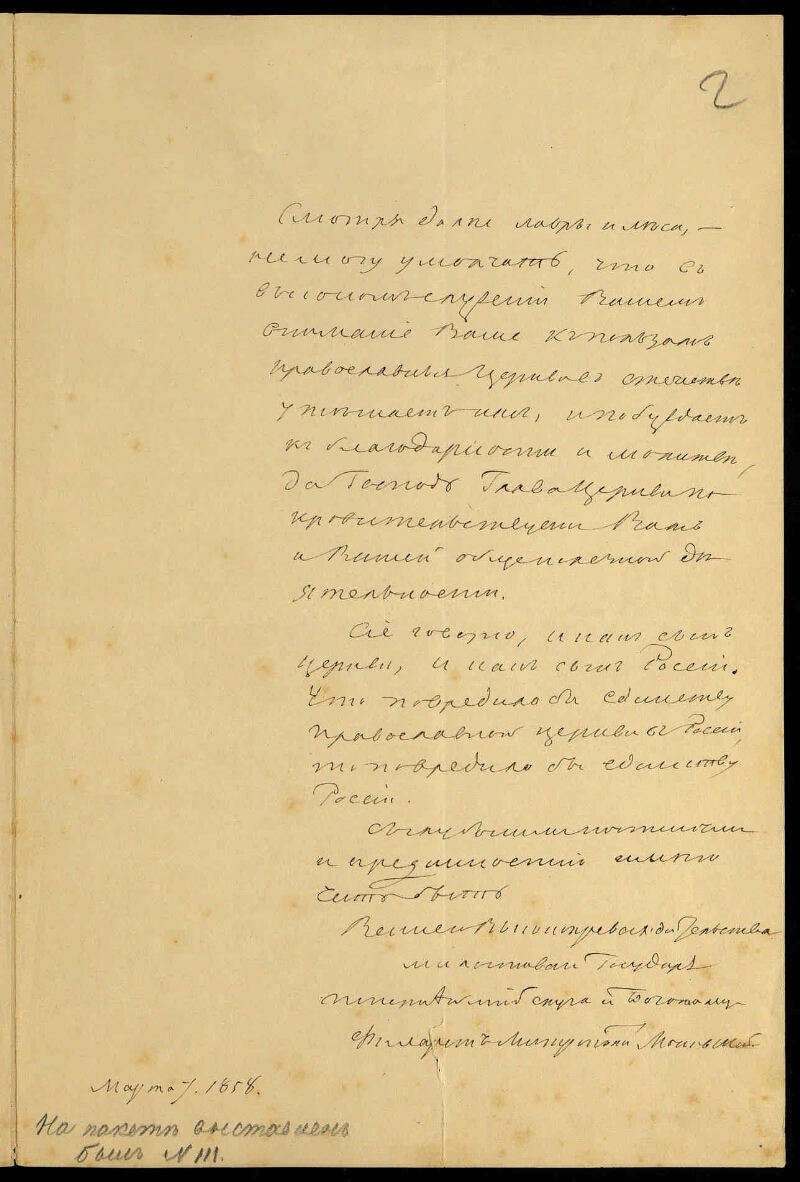 2
Смотря далѣе лавры и лѣса, —
не могу умолчать, что въ
высокомъ служеніи Вашемъ
вниманіе Ваше къ пользамъ
православныя Церкви въ отечествѣ
утѣшаетъ насъ, и побуждаетъ
къ благодарности и молитвѣ,
да Господь Глава Церкви по-
кровительствуетъ Вамъ
и Вашей общеполезной дѣ-
ятельности.
Сіе говорю, и какъ сынъ
церкви, и какъ сынъ Россіи.
Что повредило бы единству
православной церкви въ Россіи,
то повредило бы единству
Россіи.
Съ глубокимъ почтеніемъ
и преданностію имѣю
честь быть
Вашего Высокопревосходительства
милостивый Государь
покорнѣйшій слуга и Богомолецъ
Филаретъ Митрополитъ Московскій
Марта 7. 1858.
На пакетѣ выставленъ
былъ № 111.